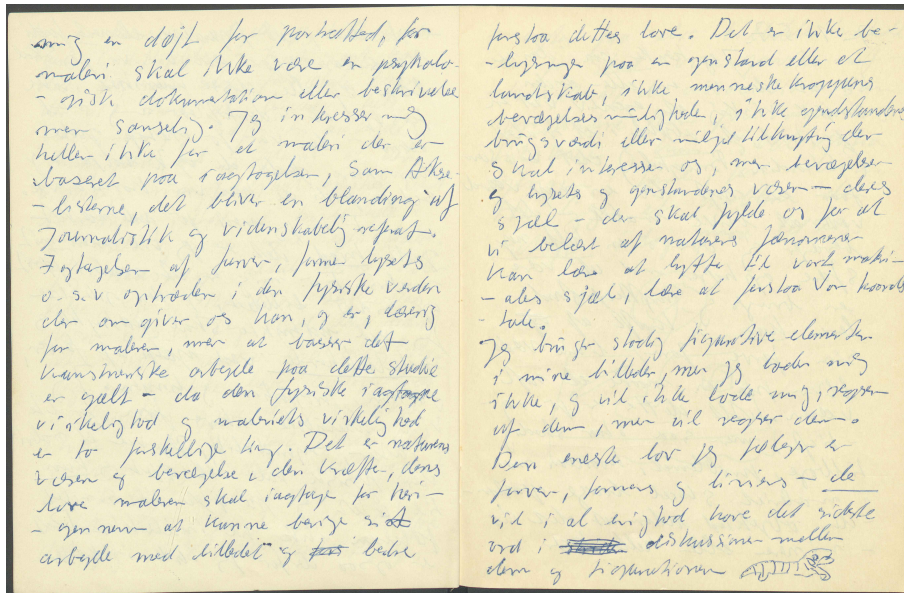 mig en døjt for portrættet, for
maleri skal ikke være en psykolo-
-gisk dokumentation eller beskrivelse
men sanselig. Jeg interesser mig
heller ikke for et maleri der er
baseret paa iagtagelsen, som
-listerne, det bliver en blanding af
Journalistik og videnskabelig referat.
Iagtagelsen af farver, former lysets
o.s.v optræden i den fysiske verden
der om giver os kan, og er, lærerig
for maleren, men at basser det
kunstneriske arbejde paa dette studie
er galt – da den fysiske
virkelighed og maleriets virkelighed
er to forskellige ting. Det er naturens
væsen og bevægelse, den kræfter, dens
love maleren skal iagtage for heri-
-gennem at kunne berige sit
arbejde med billedet og bedre
forstaa dettes love. Det er ikke be-
-lysningen paa en genstand eller et
landskab, ikke menneskekroppens
bevægelsesmuligheder, ikke genstandens
brugsværdi eller miljøtilknytning der
skal interesser os, men bevægelsen
og lysets og genstandenes væsen – deres
sjæl – der skal fylde os for at
vi belært af naturens fænomener
kan lære at lytte til vort matri-
-ales sjæl, lære at forstaa vor
tale.
Jeg bruger stadig figurative elementer
i mine billeder, men jeg lader mig
ikke, og vil ikke lade mig, regser
af dem, men vil regser dem.
Den eneste lov jeg følger er
farven, formens og liniens – de
vil i al evighed have det sidste
ord i diskussionen mellem
dem og figurationen